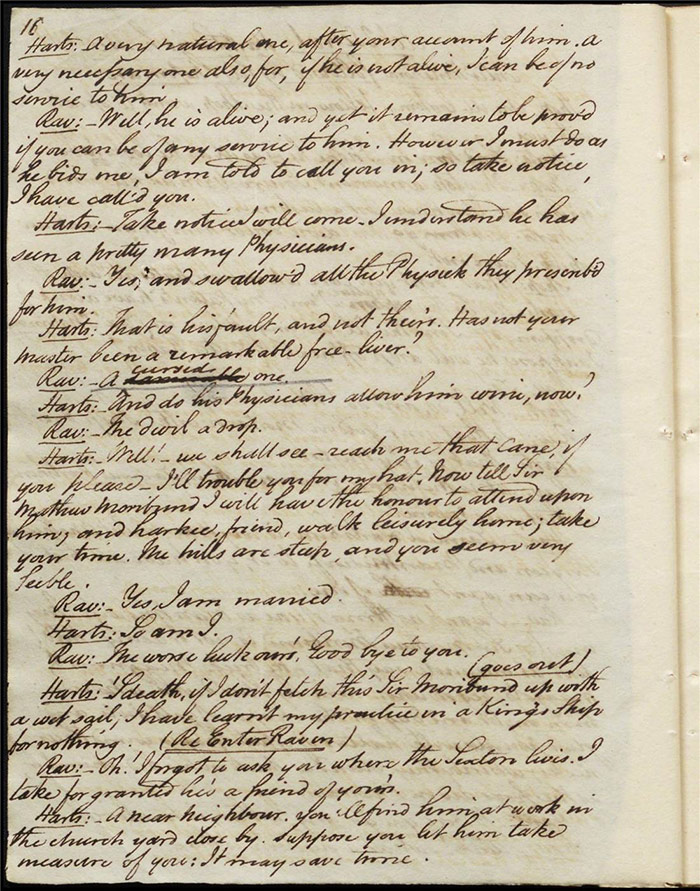 16
Harts: A very natural one, after your account of him. A
very necessary one also, for, if he is not alive, I can be of no
service to him
Rav: - Well, he is alive; and yet it remains to be prov'd
if you can be of any service to him. However I must do as
he bids me, I am told to call you in; so take notice,
I have call'd you.
Harts: - Take notice I will come - I understand he has
seen a pretty many Physicians.
Rav: - Yes, and swallow'd all the Physick they prescrib'd
for him.
Harts: That is his fault, and not their's. Has not your
master been a remarkable free-liver?
Rav: - A cursed one.
Harts: - And do his Physicians allow him wine, now?
Rav: - The devil a drop.
Harts: - Well! - we shall see - reach me that cane, if
you please - I'll trouble you for my hat. Now tell Sir
Mathew Moribund I will have the honour to attend upon
him; and harkee, friend, walk leisurely home; take
your time. The hills are steep, and you seem very
feeble.
Rav: - Yes, I am married.
Harts: So am I.
Rav: The worse luck our's, Good bye to you.
(goes out)
Harts: 'Sdeath, if I don't fetch this Sir Moribund up with
a wet sail, I have learnt my practice in a King's Ship
for nothing. (Re Enter Raven)
Rav: - Oh! I forgot to ask you where the Sexton lives. I
take for granted he's a friend of your's.
Harts: - A near neighbour. you'll find him at work in
the church yard close by. Suppose you let him take
measure of you: It may save time.